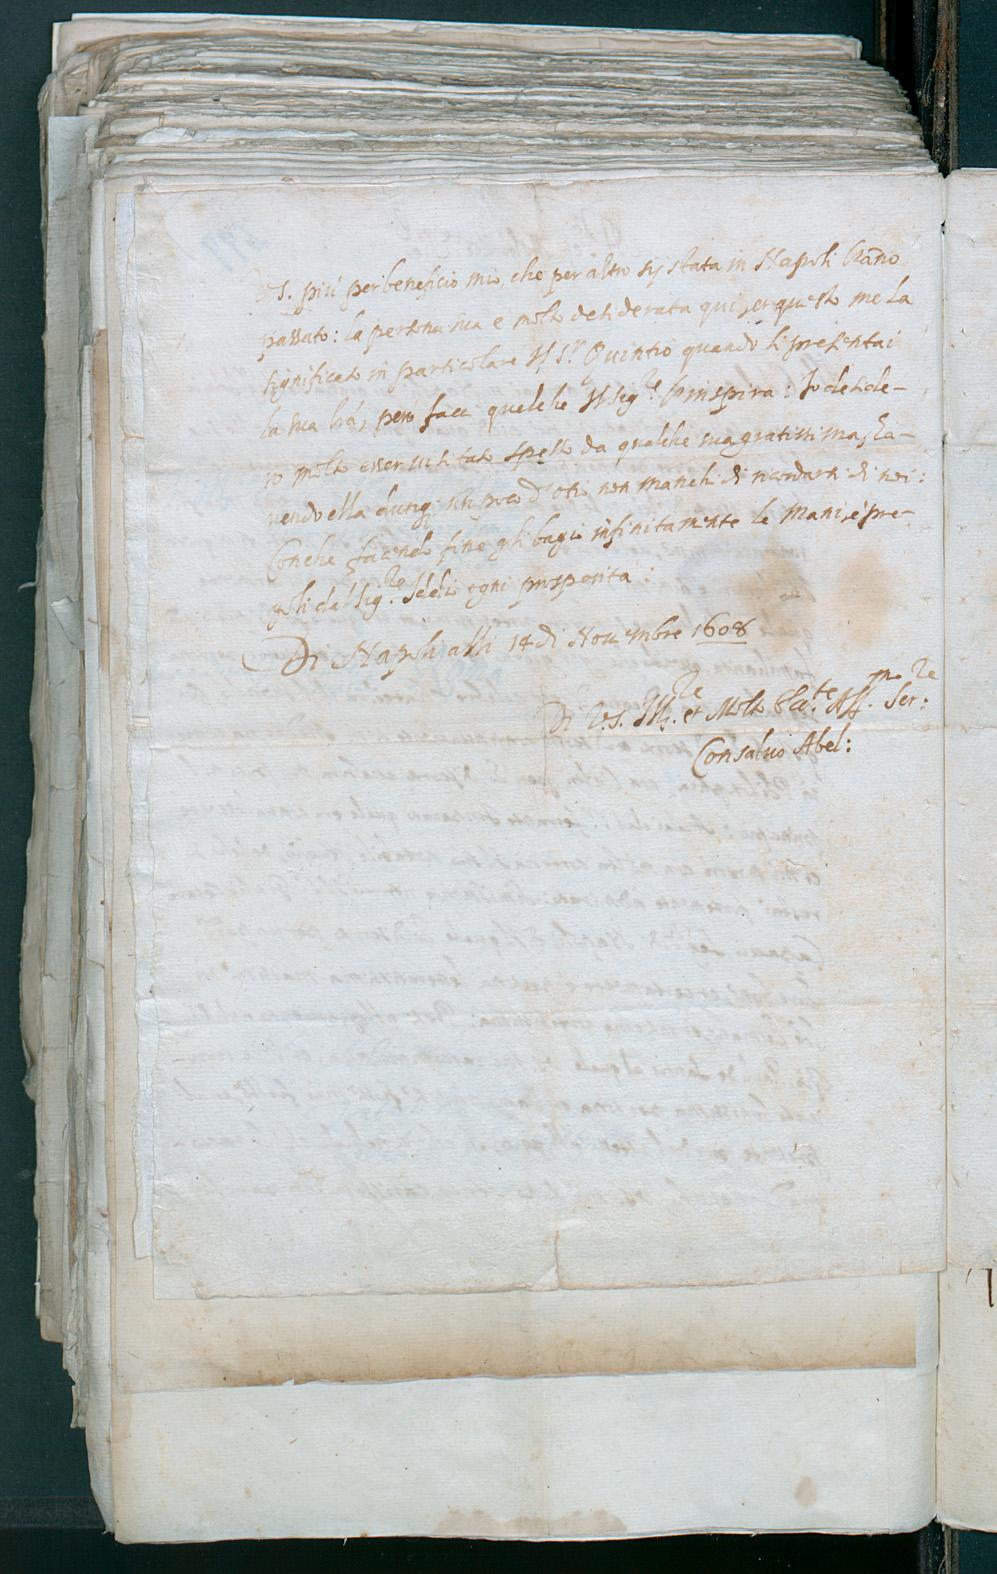 V.S. più per beneficio mio, che per altro sij stata in Napoli l'anno
passato: la persona sua è molto desiderata qui, er questo me la
significato in particolare Il S.r Quintio quando li presentai
la sua l'ra, però facci quelche Il Sig.re l'inspira: Io deside-
ro molto esser visitato spesso da qualche sua gratissima, ha-
vendo ella dunq; un poco d'otio non manchi di ricordarsi di noi:
Conche facendo fine gli bagio infinitamente le mani, è pre-
goli dal Sig.re Iddio ogni prosperita:
Di Napoli alli 14 di Novembre 1608
Di V.S. Ill.re et Molto Ecc.te Aff.mo Ser.re:
Consalvo Abel: